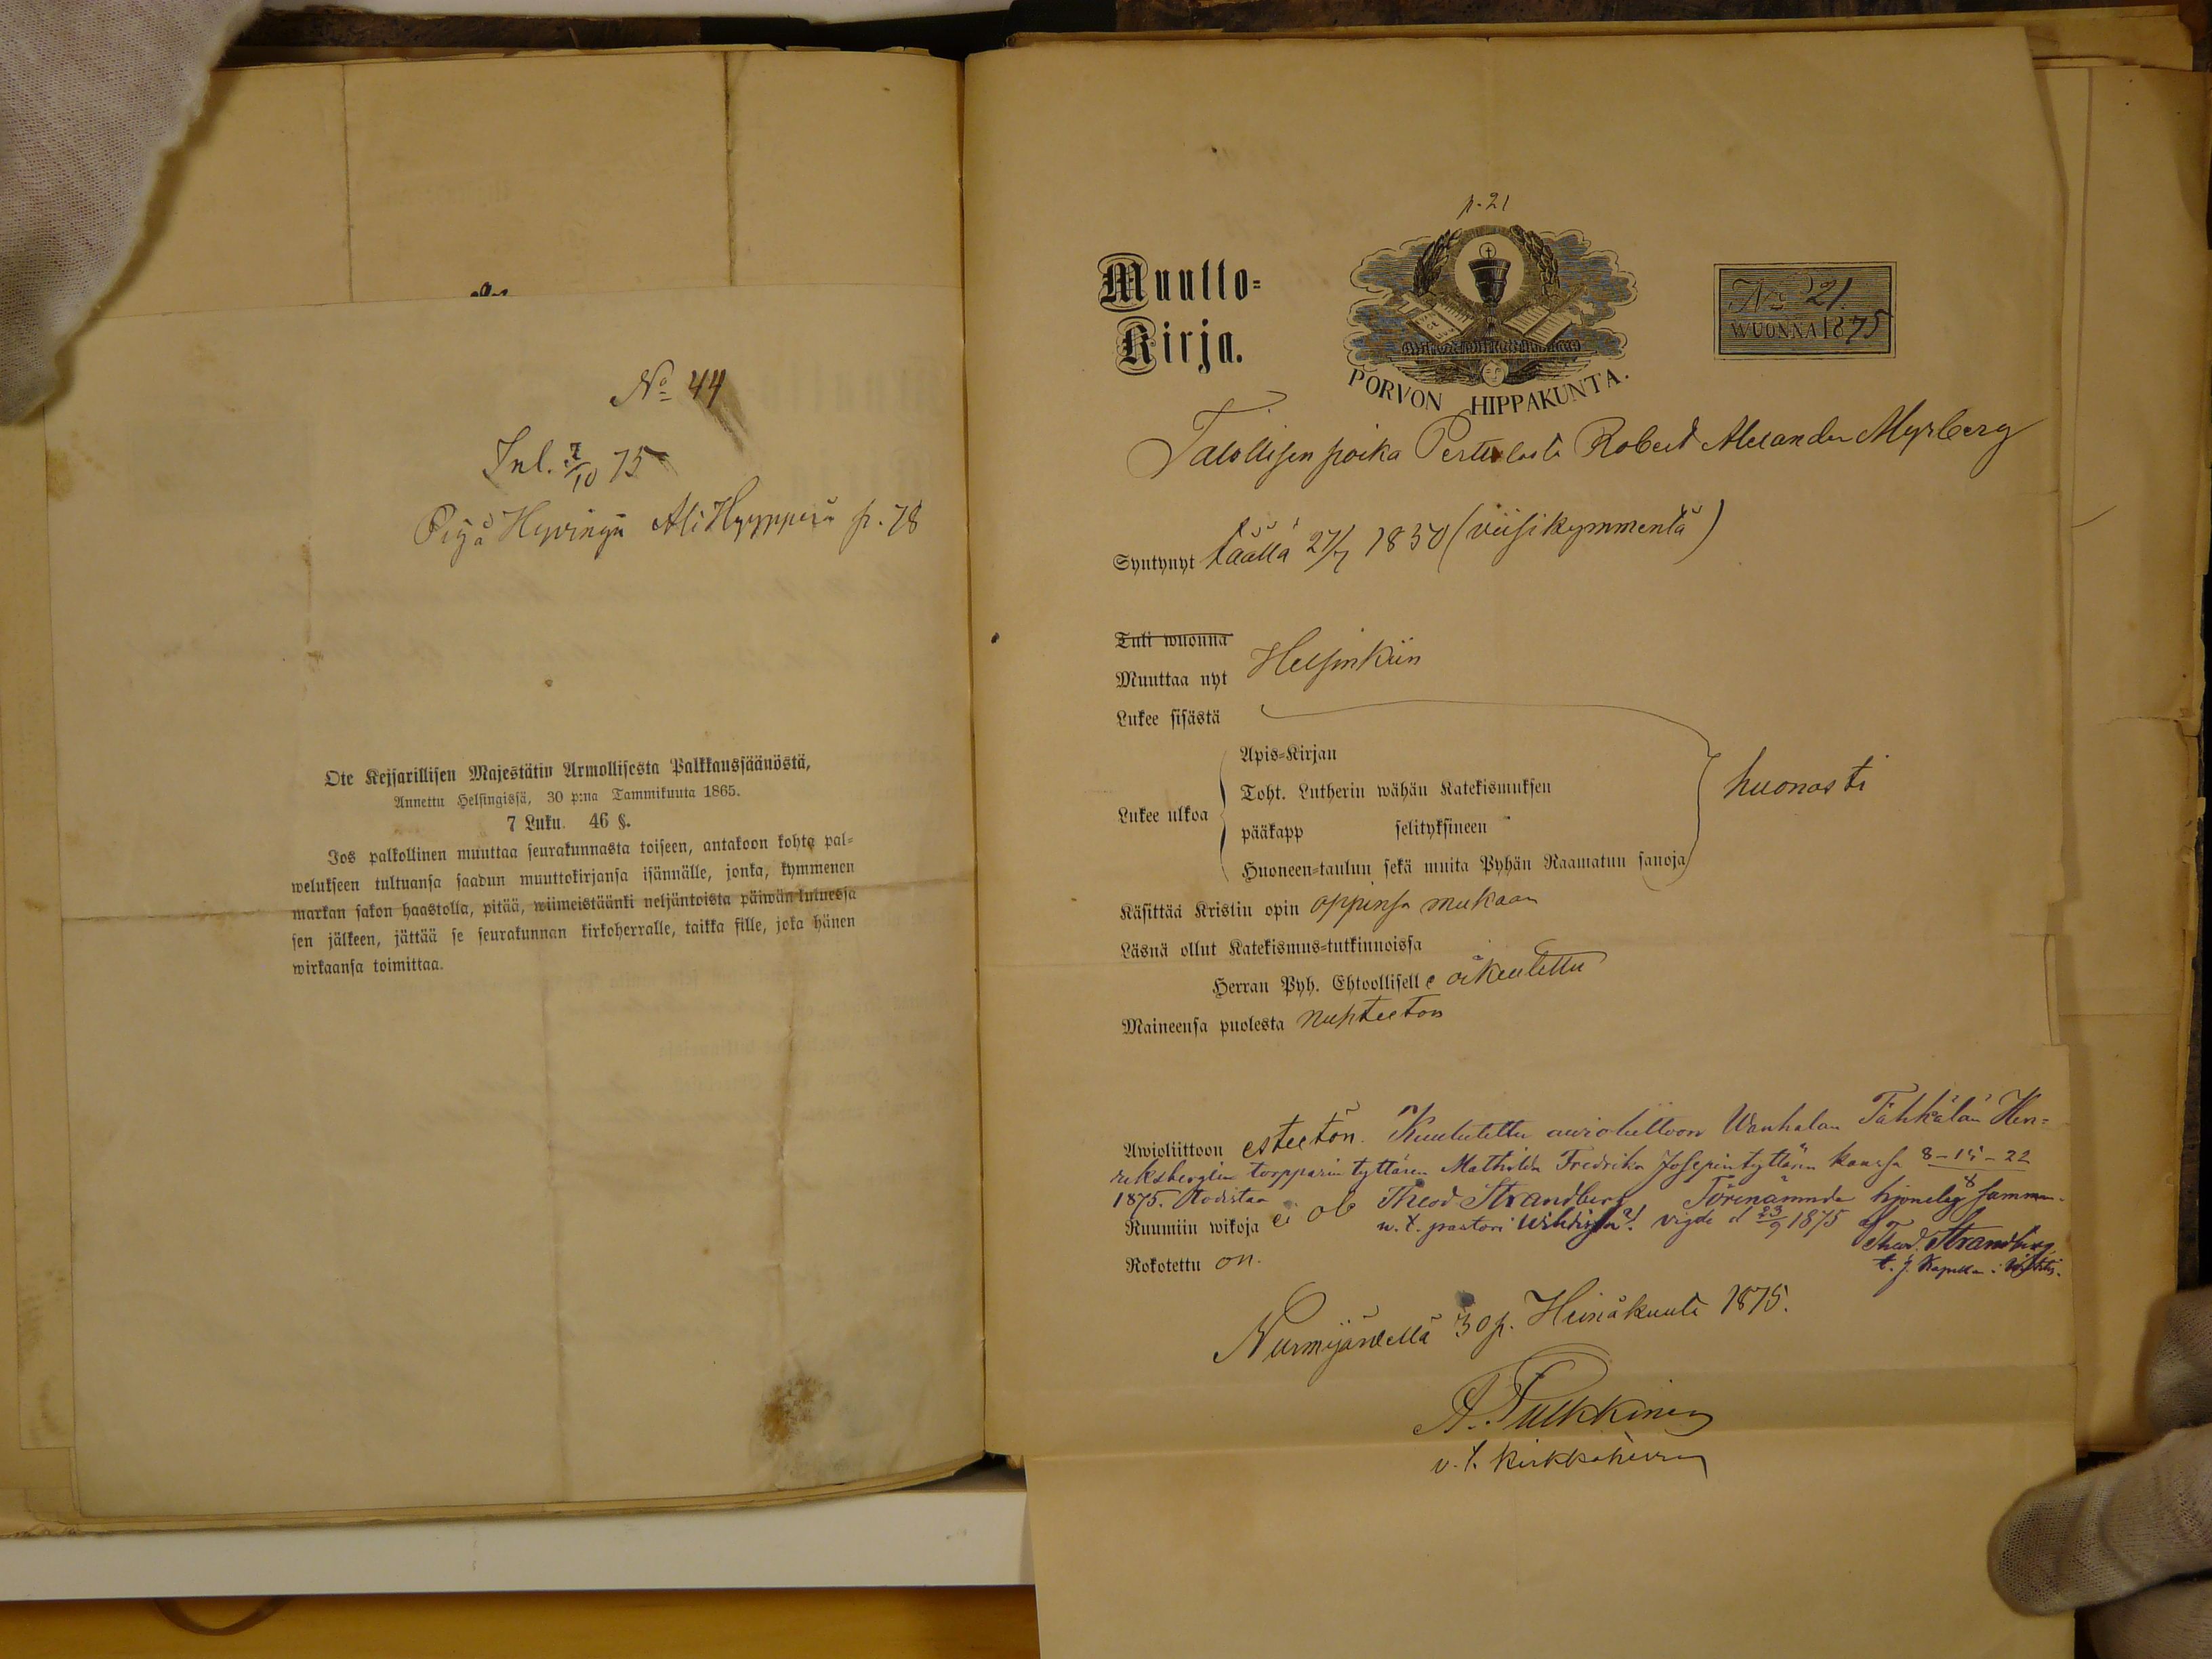 No 44
Inl. 7/10 75
Piga Hyvinge Ali Hyyppärä p. 78
Ote Kejsarillisen Majestätin Armollisesta Palkkaussäänöstä,
Annettu Helsingissä, 30 p:na Tammikuuta 1865.
7 Luku. 46 §.
Jos palkollinen muuttaa seurakunnasta toiseen, antakoon kohta pal-
welukseen tultuansa saadun muuttokirjansa isännälle, jonka, kymmenen
markan sakon haastolla, pitää, wiimeistäänki neljäntoista päiwän kuluessa
sen jälkeen, jättää se seurakunnan kirkoherralle, taikka sille, joka hänen
wirkaansa toimittaa.
p. 21
Muutto-
Kirja.
PORVON HIPPAKUNTA.
No 21
WUONNA 1875
Talollisen poika Perttulasta Robert Alexander Myrberg
Syntynyt täällä 27/7 1850 (viisikymmentä)
Tuli wuonna
Muuttaa nyt Helsinkiin
Lukee sisästä
Apis-Kirjan
Toht. Lutherin wähän Katekismuksen
Lukee ulkoa
pääkapp selityksineen
Huoneen-taulun sekä muita Pyhän Raamatun sanoja
huonosti
Käsittää Kristin opin oppinsa mukaan
Läsnä ollut Katekismus-tutkinnoissa
Herran Pyh. Ehtoollisell e oikeutettu
Maineensa puolesta nuhteeton
Awioliittoon esteetön. Kuulutettu avioliittoon Wanhalan Tähkälän Hen-
riksbergin torpparin tyttären Mathilda Fredrika Josepintyttären kanssa 8-15-22
1875. todistaa Theod Strandberg
Ruumiin wikoja ei ole
w. t. pastori Wihdissä.
Förenämnde hjonelag samman-
vigde d 23/9 1875 af
Theod. Strandberg
t. j. Kapellan i Wichtis.
Rokotettu on.
Nurmijärvellä 30 p. Heinäkuuta 1875.
A. Pulkkinen
v. t. kirkkoherra